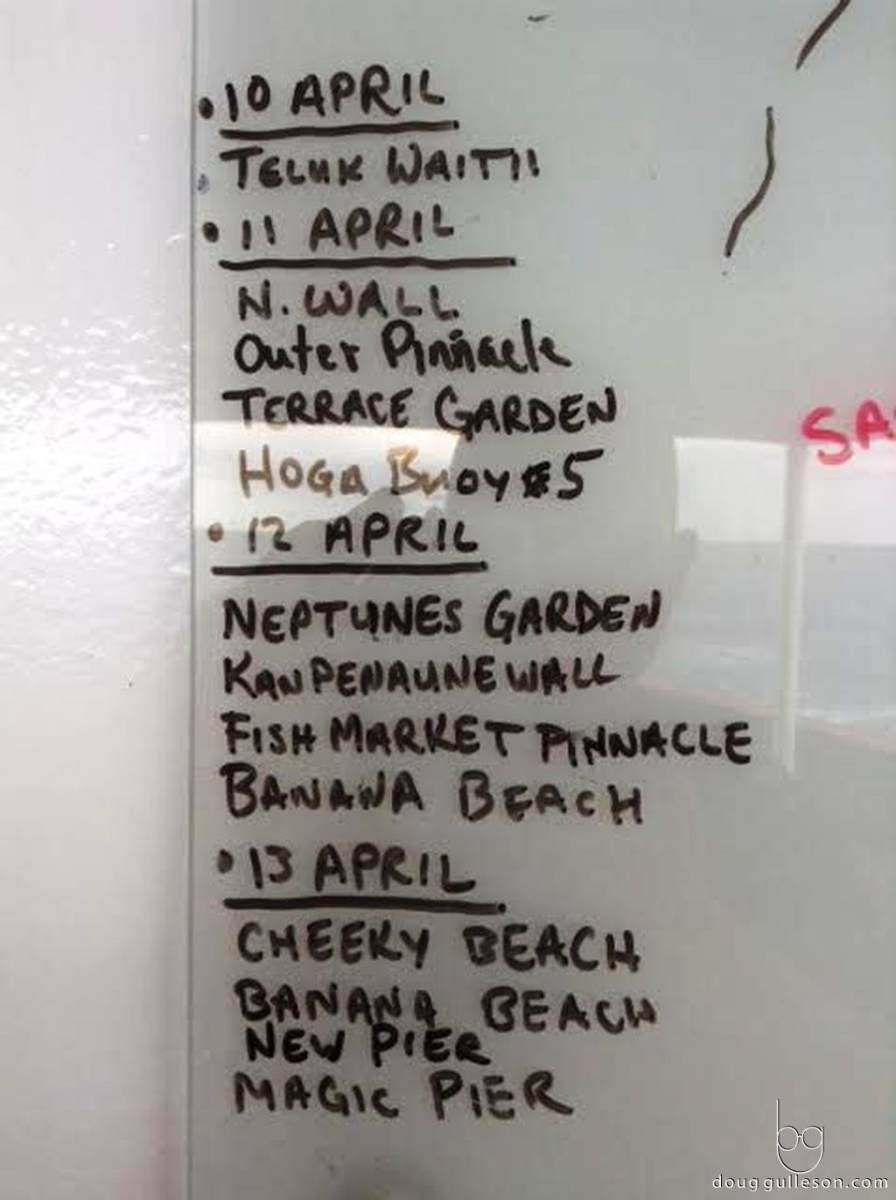 • 10 APRIL
• TELUK WAITII
• 11 APRIL
N. WALL
Outer Pinnacle
TERRACE GARDEN
HOGA BUOY #5
• 12 APRIL
NEPTUNES GARDEN
KANPENAUNE WALL
FISH MARKET PINNACLE
BANANA BEACH
• 13 APRIL
CHEEKY BEACH
BANANA BEACH
NEW PIER
MAGIC PIER
SA
bg
douggulleson.com